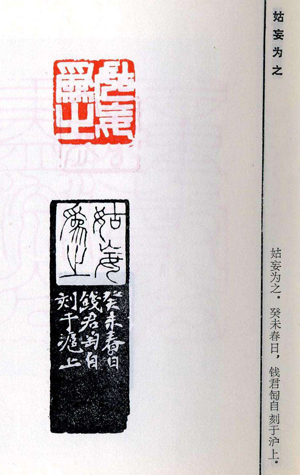 姑妄为之
姑妄为之。癸未春日，钱君匋自刻于沪上。
姑妄
為之
姑妄
為之
癸未春日
錢君匋自
刻于滬上